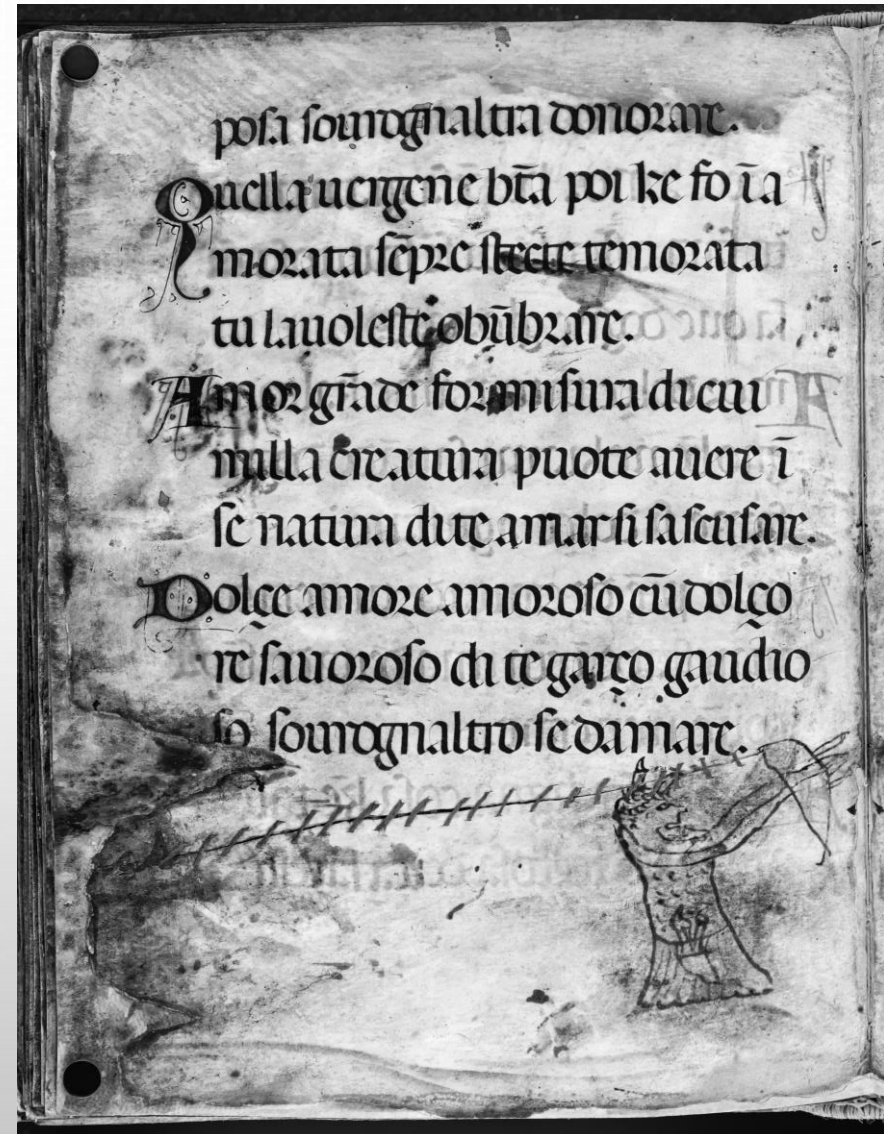 posa sourognaltra donorare.
Quella uergene bt̄a poi ke fo ī a
morata sēpre stecte temorata
tu la uoleste obūbrare.
Amor grāde for misura di cui
nulla creatura puote auere ī
se natura di te amar si sa scusare.
Dolçe amore amoroso cū dolço
re sauoroso di te garço gaudio
so sourognaltro se damare.